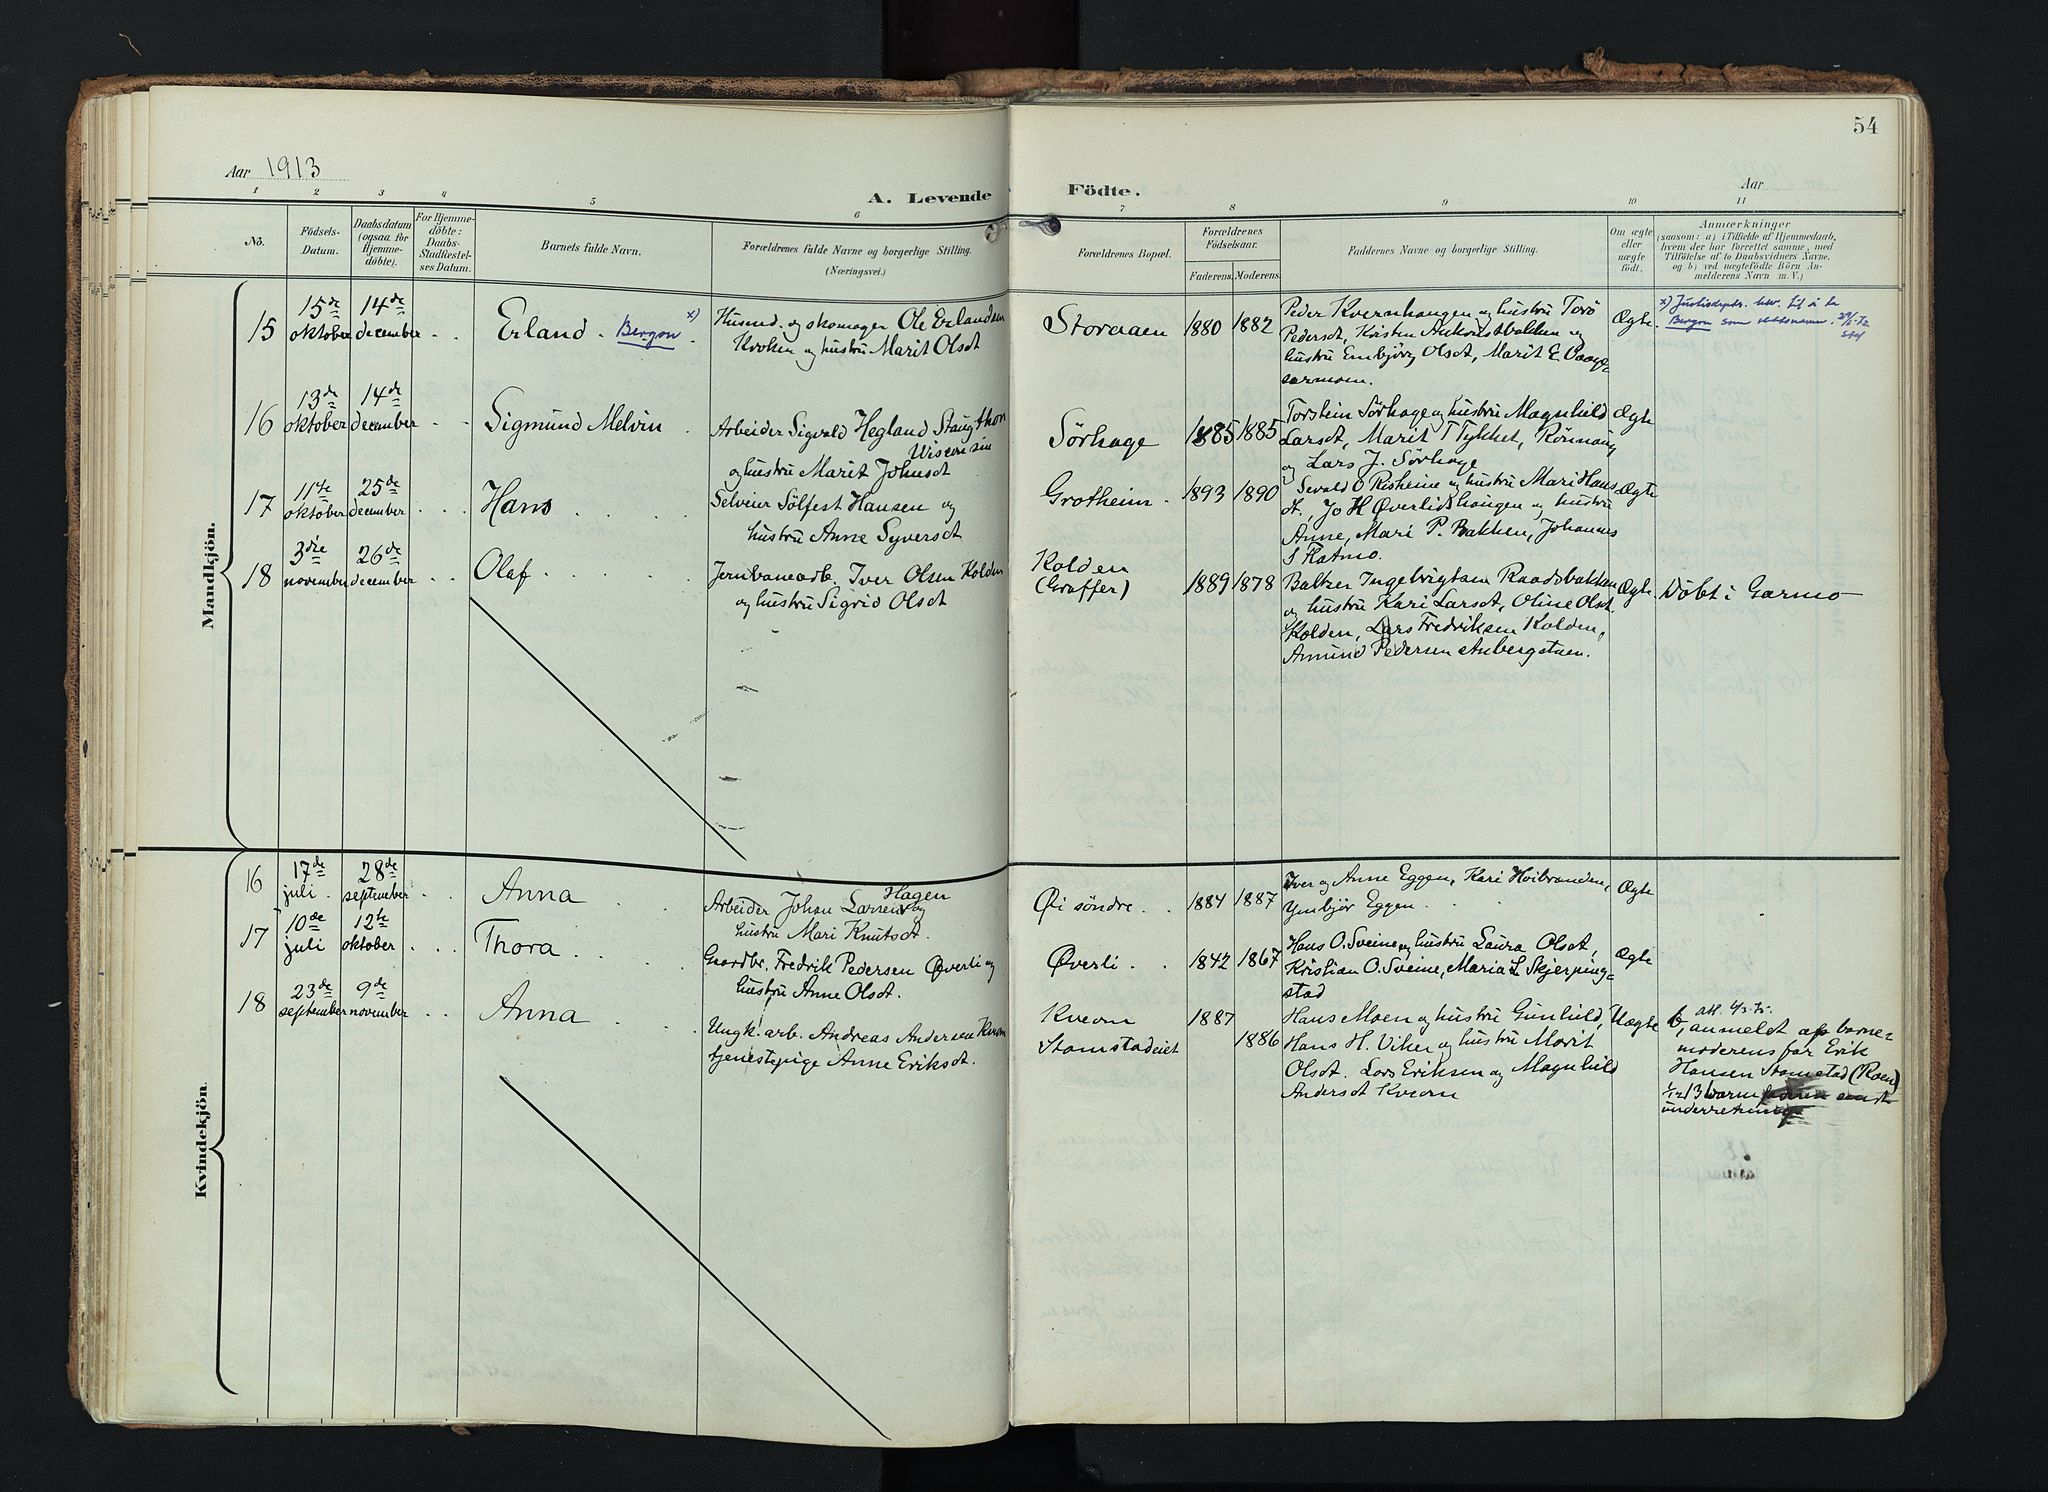 54
Aar 1913
A. Levende Födte.
Aar
1 2 3 4 5 6 7 8 9 10 11
No.
Födsels-
Datum.
Daabsdatum
(ogsaa for
Hjemme-
döbte).
For Hjemme-
döbte:
Daabs-
Stadfæstel-
ses Datum.
Barnets fulde Navn.
Forældrenes fulde Navne og borgerlige Stilling.
(Næringsvei.)
Forældrenes Bopæl.
Forældrenes
Födselsaar.
Faderens. Moderens.
Faddernes Navne og borgerlige Stilling.
Om ægte
eller
uægte
födt.
Anmærkninger
(saasom: a) i Tilfælde af Hjemmedaab,
hvem der har forrettet samme, med
Tilföielse af to Daabsvidners Navne.
og b) ved uægtefödte Börn An-
melderens Navn m. V.)
Mandkjön.
15
15de
oktober
14de
december
Erland. Bergom x)
Husmd. og skomager Ole Erlandsen
Kroken og hustru Marit Olsdt
Storaaen
1880 1882
Peder Kvernhaugen og hustru Torö
Pedersdt, Kristen
hustru Embjörg Olsdt, Marit E.
sarmoen.
Ægte.
x) Justisdepts. bev. til å ta
Bergom som slektsnavn.
16
13de
oktober
14de
december
Sigmund Melvin
Arbeider Sigvald Hegland Staugthon
Wisconsin
og hustru Marit Johnsdt
Sørhage
1885 1885
Torstein Sørhage og hustru Magnhild
Larsdt, Marit T Tykket, Rönnaug
og Lars J. Sørhage
Ægte
17
11te
oktober
25de
december
Hans
Selveier Sölfest Hansen og
hustru Anne Syversdt
Grotheim
1893 1890
Sevald O Risheim og hustru Mari Hans
dt., Jo H Øverlidshaugen og hustru
Anne, Mari P. Bakken, Johannes
S Flatmo.
Ægte
18
3die
november
26de
december
Olaf
Jernbanearb. Iver Olsen Kolden
og hustru Sigrid Olsdt
Kolden
(Graffer)
1889 1878
Baltzer Ingebrigtsen Raadsbakken
og hustru Kari Larsdt, Oline Olsdt
Kolden, Lars Fredriksen Kolden,
Amund Pedersen Aubergstuen.
Ægte.
Döbt i Garmo
Kvindekjön.
16
17de
juli
28de
september
Anna
Arbeider Johan Larsen Hagen og
hustru Mari Knutsdt.
Øi söndre
1884 1887
Iver og Anne Eggen, Kari Höibranden,
Ymbjör Eggen
Ægte
17
10de
juli
12te
oktober
Thora
Gaardbr. Fredrik Pedersen Øverli og
hustru Anne Olsdt.
Øverli
1842 1867
Hans O. Sveine og hustru Laura Olsdt,
Kristian O. Sveine, Maria L Skjerping-
stad
Ægte
18
23de
september
9de
november
Anna
Ungk. arb. Andreas Andersen Kvarn
tjenestepige Anne Eriksdt.
Kvarn
Stamstadeiet
1887
1886
Hans Moen og hustru Gunhild,
Hans H. Viken og hustru Marit
Olsdt. Lars Eriksen og Magnhild
Andersdt Kvarn
Uægte
b, anmeldt af barne-
moderens far Erik
Hansen Stamstad (Roen)
1/12 13 barnefaderen
underretning